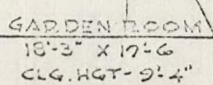 GARDEN ROOM
18'-3" X 17'-6
CLG. HGT - 9'-4"